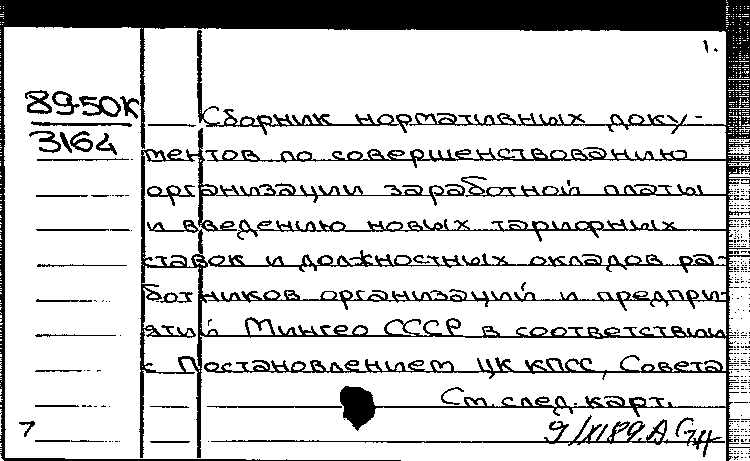 1.
89-50К
3164
Сборник нормативных доку-
ментов по совершенствованию
организации заработной платы
и введению новых тарифных
ставок и должностных окладов ра-
ботников организаций и предпри-
ятий Мингео СССР в соответствии
с Постановлением ЦК КПСС, Совета
См. след. карт.
7
9/XI89.А.